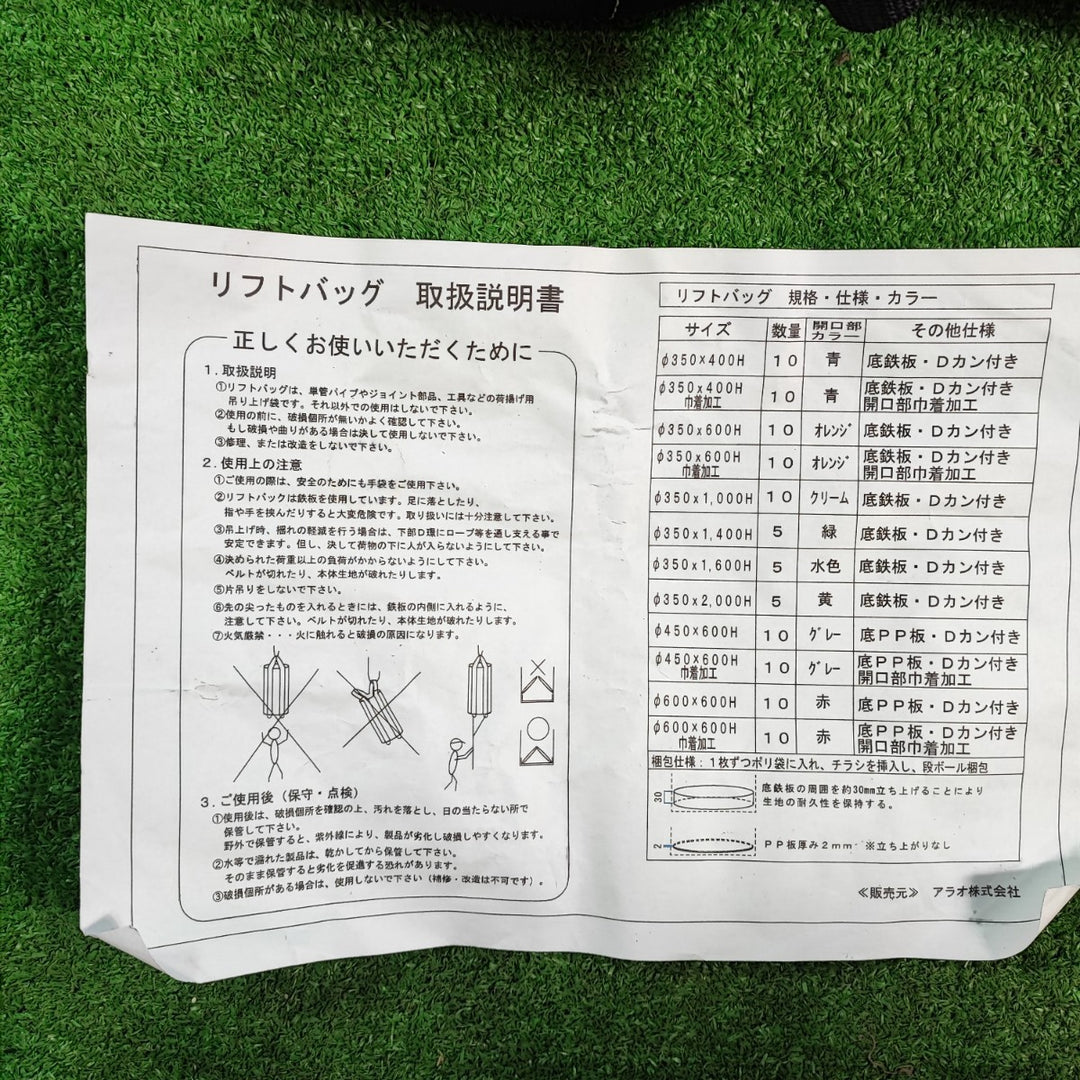 リフトバッグ 取扱説明書
正しくお使いいただくために
1.取扱説明
①リフトバッグは、単管パイプやジョイント部品、工具などの荷揚げ用
吊り上げ袋です。それ以外での使用はしないで下さい。
②使用の前に、破損個所が無いかよく確認して下さい。
もし破損や曲りがある場合は決して使用しないで下さい。
③修理、または改造をしないで下さい。
2.使用上の注意
①ご使用の際は、安全のためにも手袋をご使用下さい。
②リフトバックは鉄板を使用しています。足に落としたり、
指や手を挟んだりすると大変危険です。取り扱いには十分注意して下さい。
③吊上げ時、揺れの軽減を行う場合は、下部D環にロープ等を通し支える事で
安定できます。但し、決して荷物の下に人が入らないようにして下さい。
④決められた荷重以上の負荷がかからないようにして下さい。
ベルトが切れたり、本体生地が破れたりします。
⑤片吊りをしないで下さい。
⑥先の尖ったものを入れるときには、鉄板の内側に入れるように、
注意して下さい。ベルトが切れたり、本体生地が破れたりします。
⑦火気厳禁・・・火に触れると破損の原因になります。
3.ご使用後（保守・点検）
①使用後は、破損個所を確認の上、汚れを落とし、日の当たらない所で
保管して下さい。
野外で保管すると、紫外線により、製品が劣化し破損しやすくなります。
②水等で濡れた製品は、乾かしてから保管して下さい。
そのまま保管すると劣化を促進する恐れがあります。
③破損個所がある場合は、使用しないで下さい（補修・改造は不可です）。
リフトバッグ 規格・仕様・カラー
サイズ 数量 開口部カラー その他仕様
φ350×400H 10 青 底鉄板・Dカン付き
φ350x400H 巾着加工 10 青 底鉄板・Dカン付き 開口部巾着加工
φ350x600H 10 ｵﾚﾝｼﾞ 底鉄板・Dカン付き
φ350x600H 巾着加工 10 ｵﾚﾝｼﾞ 底鉄板・Dカン付き 開口部巾着加工
φ350x1,000H 10 クリーム 底鉄板・Dカン付き
φ350x1,400H 5 緑 底鉄板・Dカン付き
φ350x1,600H 5 水色 底鉄板・Dカン付き
φ350x2,000H 5 黄 底鉄板・Dカン付き
φ450×600H 10 ｸﾞﾚｰ 底PP板・Dカン付き
φ450×600H 巾着加工 10 ｸﾞﾚｰ 底PP板・Dカン付き 開口部巾着加工
φ600x600H 10 赤 底PP板・Dカン付き
φ600x600H 巾着加工 10 赤 底PP板・Dカン付き 開口部巾着加工
梱包仕様：1枚ずつポリ袋に入れ、チラシを挿入し、段ボール梱包
30
底鉄板の周囲を約30mm立ち上げることにより
生地の耐久性を保持する。
2
PP板厚み2mm ※立ち上がりなし
≪販売元≫ アラオ株式会社